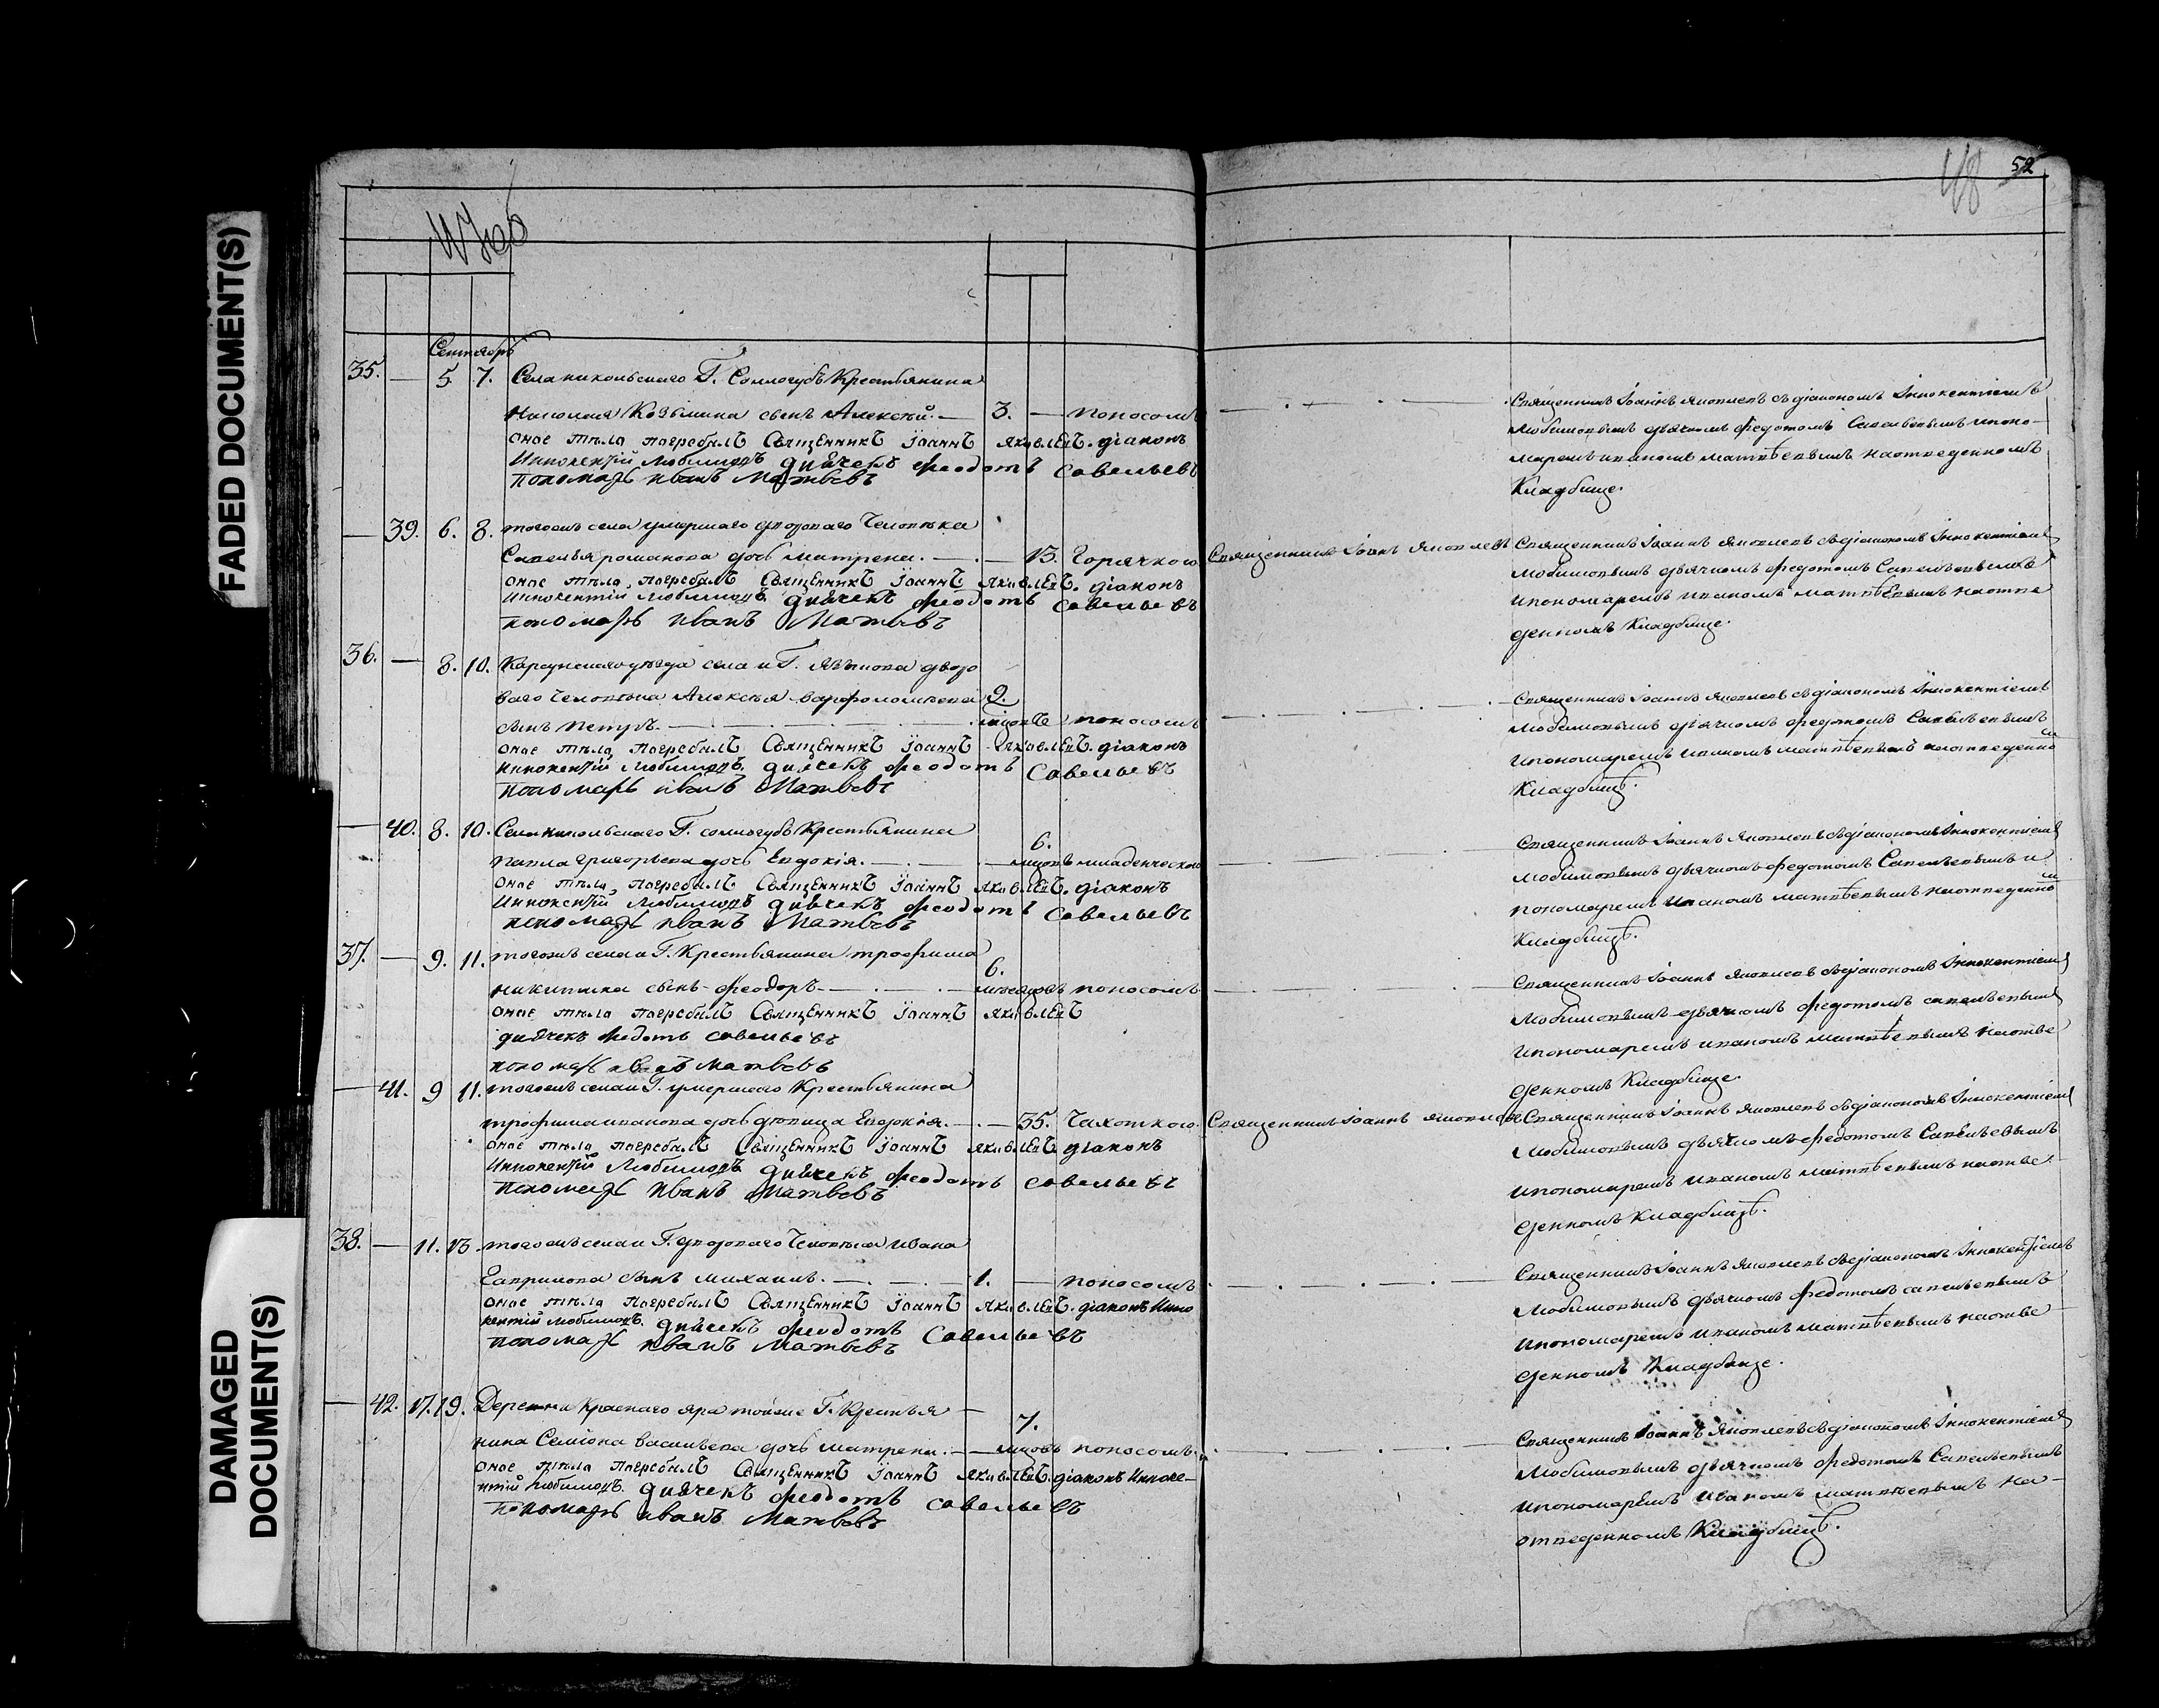 FADED DOCUMENT(S)
DAMAGED
DOCUMENT(S)
48 52
Сентябрь
35. — 5 7. Села никольскаго Г. Соллогубъ Крестьянина
Николая Козьмина сынъ Алексѣй. — 3. — поносомъ
оное тѣло погребалъ Священникъ Іоаннъ Яковлевъ. діаконъ
Иннокентій Любимовъ дьячекъ Феодотъ Савельевъ
Пономарь Иванъ Матвѣевъ
Священникъ Іоаннъ Яковлевъ съ діакономъ Іннокентіемъ
Любимовымъ дьячкомъ Федотомъ Савельевымъ и поно-
маремъ иваномъ матвѣевымъ наотведенномъ
Кладбище.
— 39. 6. 8. тогожъ села умершаго двороваго Человѣка
Савелья романова дочь матрена. — — 13. Горячкою Священникъ Іоаннъ Яковлевъ
оное тѣло погребалъ Священникъ Іоаннъ Яковлевъ. діаконъ
Иннокентій Любимовъ дьячекъ Феодотъ Савельевъ
пономарь Иванъ Матвѣевъ
Священникъ Іоаннъ Яковлевъ съ діакономъ Іннокентіемъ
Любимовымъ дьячкомъ Федотомъ Савельевымъ
ипономаремъ иваномъ матвѣевымъ наотве
денномъ Кладбище.
36. — 8. 10. Карсунскаго уѣзда села и Г. Языкова дворо
ваго Человѣка Алексѣя варфоломѣева 2.
сынъ Петръ. — мѣсяцовъ поносомъ
оное тѣло погребалъ Священникъ Іоаннъ Яковлевъ. діаконъ
Иннокентій Любимовъ. дьячекъ Феодотъ Савельевъ
Пономарь Иванъ Матвѣевъ
Священникъ Іоаннъ Яковлевъ съ діакономъ Іннокентіемъ
Любимовымъ дьячкомъ Федотомъ Савельевымъ
ипономаремъ иваномъ матвѣевымъ наотведенно
Кладбищѣ.
— 40. 8. 10. Села никольскаго Г. соллогубъ Крестьянина 6.
павла григорьева дочь Евдокія. — — мѣсяцовъ младенческою
оное тѣло, погребалъ Священникъ Іоаннъ Яковлевъ. діаконъ
Иннокентій Любимовъ дьячекъ Феодотъ Савельевъ
пономарь Иванъ Матвѣевъ
Священникъ Іоаннъ Яковлевъ съ діакономъ Іннокентіемъ
Любимовымъ дьячкомъ Федотомъ Савельевымъ и
пономаремъ иваномъ матвѣевымъ наотведенно
Кладбищѣ.
37. — 9. 11. тогожъ села и Г. Крестьянина трофима 6.
никитина сынъ Феодоръ. — мѣсяцовъ поносомъ
оное тѣло погребалъ Священникъ Іоаннъ Яковлевъ
дьячекъ Федотъ Савельевъ
пономарь Иванъ Матвѣевъ
Священникъ Іоаннъ Яковлевъ съ діакономъ Іннокентіемъ
Любимовымъ дьячкомъ Федотомъ савельевымъ
ипономаремъ иваномъ матвѣевымъ наотве
денномъ Кладбище.
— 41. 9 11. тогожъ села и Г. умершаго Крестьянина
трофима иванова дочь дѣвица Евдокія. — — 35. Чахоткою. Священникъ Іоаннъ Яковлевъ
оное тѣло погребалъ Священникъ Іоаннъ Яковлевъ діаконъ
Иннокентій Любимовъ дьячекъ Феодотъ Савельевъ
Пономарь Иванъ Матвѣевъ
Священникъ Іоаннъ Яковлевъ съ діакономъ Іннокентіемъ
Любимовымъ дьячкомъ Федотомъ Савельевымъ
ипономаремъ иваномъ матвѣевымъ наотве
денномъ Кладбищѣ.
38. — 11. 13. тогожъ села и Г. двороваго Человѣка Ивана
Гаврилова сынъ михаилъ. — 1. — поносомъ
оное тѣло погребалъ Священникъ Іоаннъ Яковлевъ. діаконъ Инно
кентій Любимовъ. дьячекъ Феодотъ Савельевъ
Пономарь Иванъ Матвѣевъ
Священникъ Іоаннъ Яковлевъ съ діакономъ Іннокентіемъ
Любимовымъ дьячкомъ Федотомъ савельевымъ
ипономаремъ иваномъ матвѣевымъ наотве
денномъ Кладбище.
— 42. 17. 19. Деревни Краснаго яра тойже Г. Крестья — 7.
нина Семіона васильева дочь матрена. — мѣсяцовъ поносомъ.
оное тѣло погребалъ Священникъ Іоаннъ Яковлевъ. діаконъ Инноке-
нтій Любимовъ. дьячекъ Феодотъ Савельевъ
Пономарь Иванъ Матвѣевъ
Священникъ Іоаннъ Яковлевъ съ діакономъ Іннокентіемъ
Любимовымъ дьячкомъ Федотомъ Савельевымъ
ипономаремъ Иваномъ матвѣевымъ на-
отведенномъ Кладбищѣ.